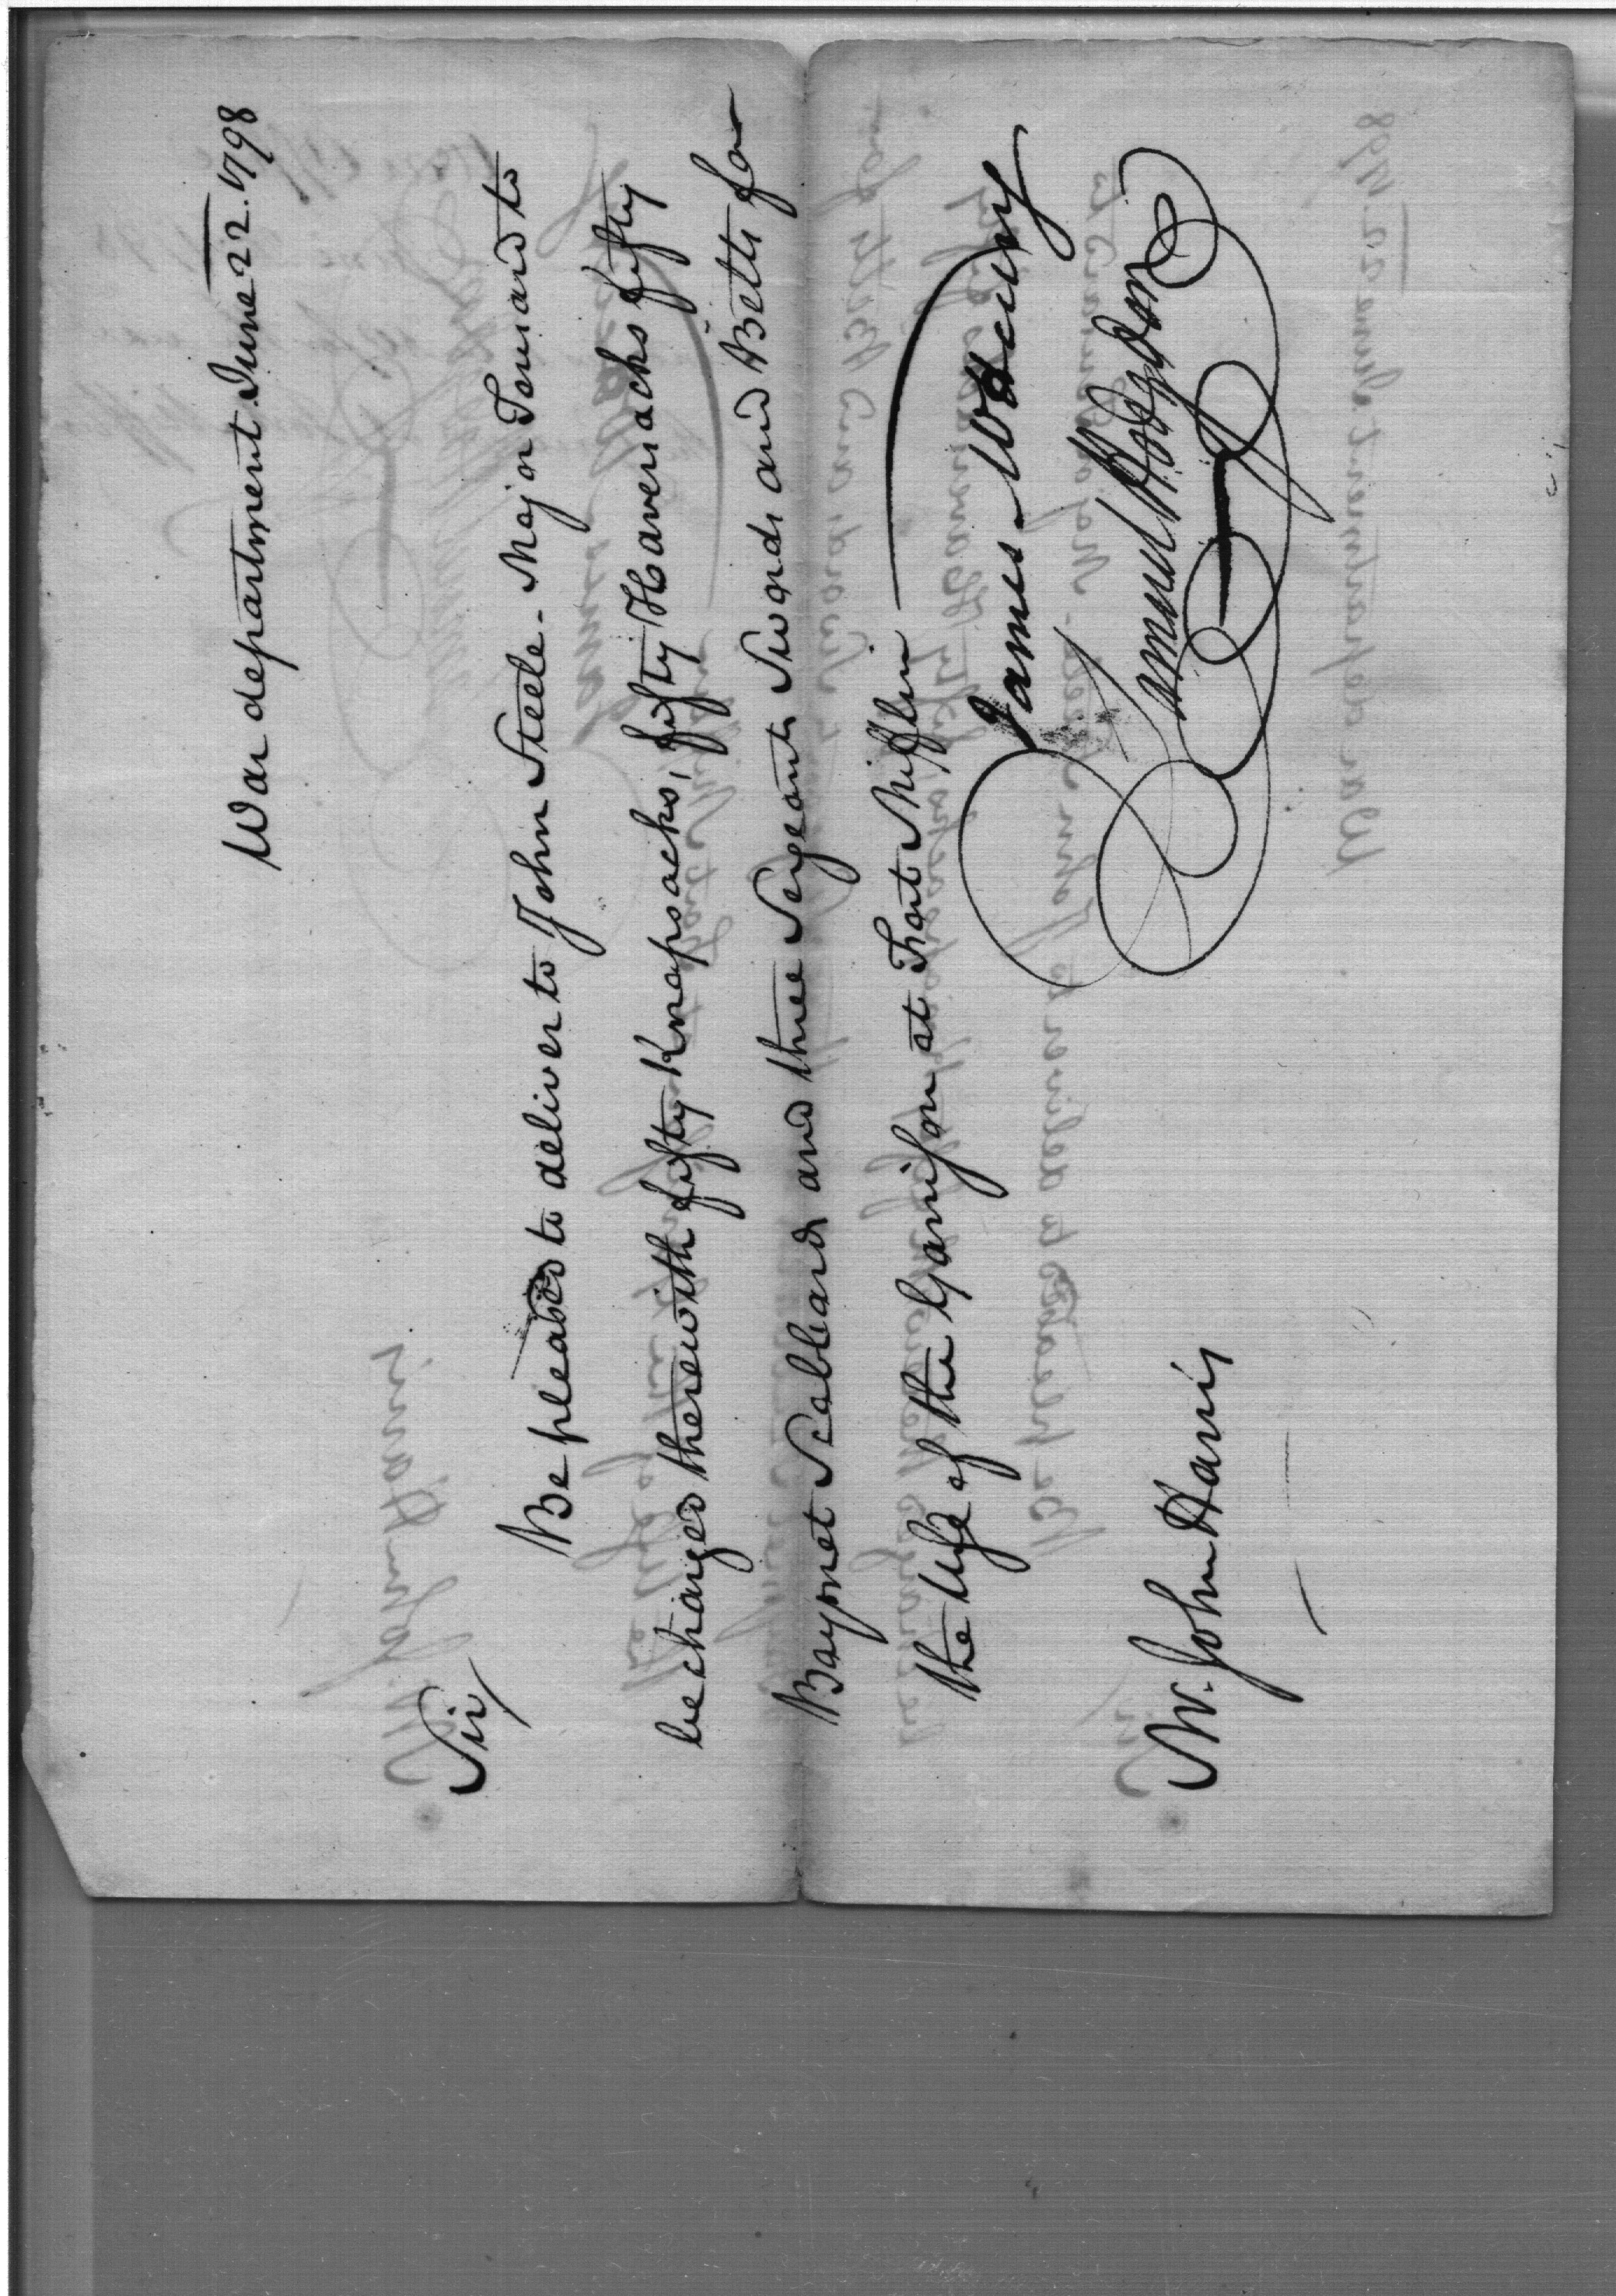 War department June 22. 1798
Sir/
Be pleased to deliver to John Steele - Major Tousard to
be charged therewith fifty Knapsacks, fifty Haversacks fifty
Bayonet Scabbards and three Sergeants Swords and Belts for
the Use of the Garrison at Fort Mifflin
James McHenry
Samuel Hodgdon
Mr. John Harris